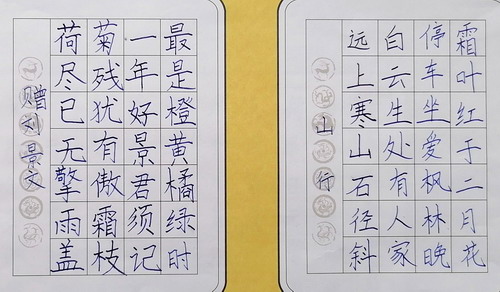 赠刘景文
荷尽已无擎雨盖
菊残犹有傲霜枝
一年好景君须记
最是橙黄橘绿时
山行
远上寒山石径斜
白云生处有人家
停车坐爱枫林晚
霜叶红于二月花